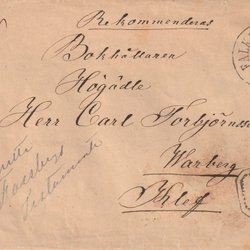 Rekommenderas
Bokhållaren
Högädle
Herr Carl Torbjörnss
Warberg
Klef
Testamente
FAL